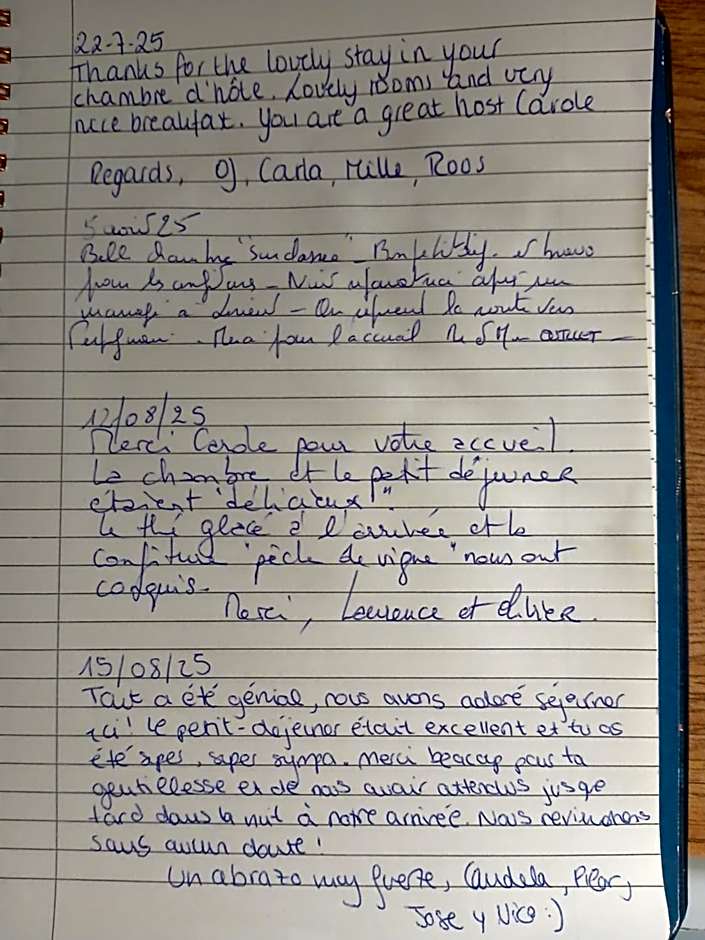 22-7-25
Thanks for the lovely stay in your
chambre d'hôte. Lovely rooms and very
nice breakfast. You are a great host Carole
Regards, OJ, Carla, Mille, Roos
5 août 25
Belle chambre "Sundance" - et bravo
pour les confitures - après un
mariage à Lorient - On reprend la route vers
Perpignan. Merci pour l'accueil
12/08/25
Merci Carole pour votre accueil.
La chambre et le petit déjeuner
étaient "délicieux!".
Le thé glacé à l'arrivée et la
confiture "pêche de vigne" nous ont
conquis.
Merci, Laurence et Olivier.
15/08/25
Tout a été génial, nous avons adoré séjourner
ici! Le petit-dejeiner était excellent et tu as
été super, super sympa. Merci beacoup pour ta
gentillesse et de nous avoir attendus jusqe
tard dans la nuit à notre arrivée. Nous reviendrons
sans aucun doute!
Un abrazo muy fuerte, Candela, Pilar,
Jose y Nico :)